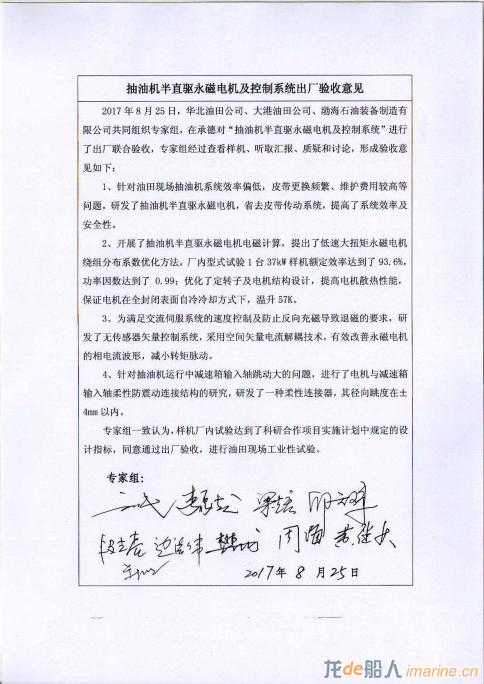 抽油机半直驱永磁电机及控制系统出厂验收意见
2017年8月25日，华北油田公司、大港油田公司、渤海石油装备制造有
限公司共同组织专家组，在承德对“抽油机半直驱永磁电机及控制系统”进行
了出厂联合验收，专家组经过查看样机、听取汇报、质疑和讨论，形成验收意
见如下：
1、针对油田现场抽油机系统效率偏低，皮带更换频繁、维护费用较高等
问题，研发了抽油机半直驱永磁电机，省去皮带传动系统，提高了系统效率及
安全性。
2、开展了抽油机半直驱永磁电机电磁计算，提出了低速大扭矩永磁电机
绕组分布系数优化方法，厂内型式试验1台37kW样机额定效率达到了93.6%，
功率因数达到了0.99；优化了定转子及电机结构设计，提高电机散热性能，
保证电机在全封闭表面自冷冷却方式下，温升57K。
3、为满足交流伺服系统的速度控制及防止反向充磁导致退磁的要求，研
发了无传感器矢量控制系统，采用空间矢量电流解耦技术，有效改善永磁电机
的相电流波形，减小转矩脉动。
4、针对抽油机运行中减速箱输入轴跳动大的问题，进行了电机与减速箱
输入轴柔性防震动连接结构的研究，研发了一种柔性连接器，其径向跳度在±
4mm以内。
专家组一致认为，样机厂内试验达到了科研合作项目实施计划中规定的设
计指标，同意通过出厂验收，进行油田现场工业性试验。
专家组：
周海
2017年8月25日
龙de船人 imarine.cn